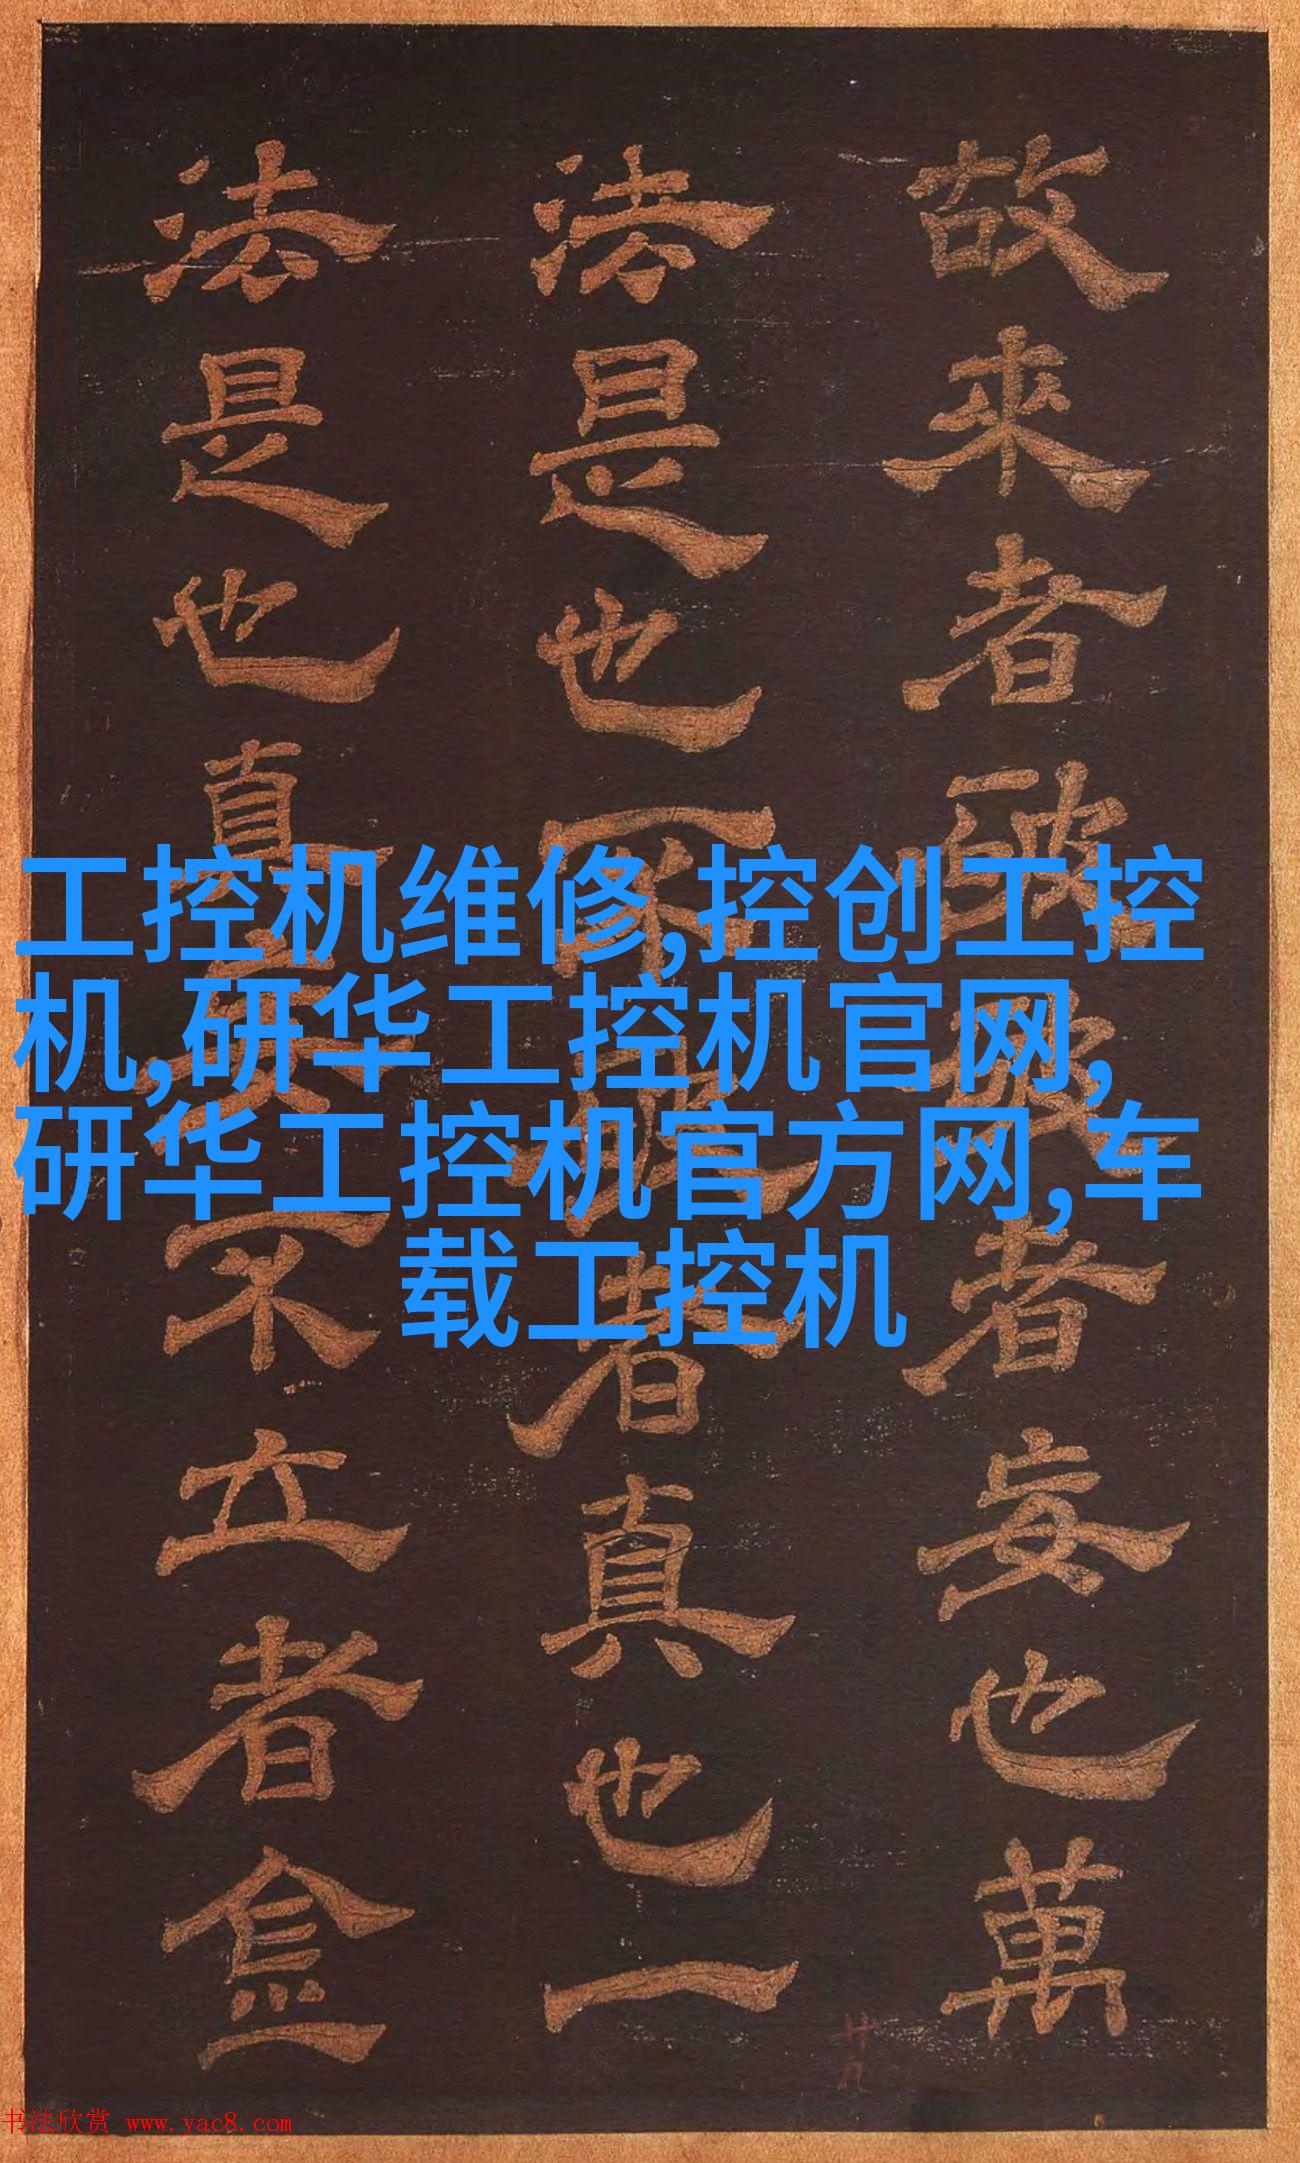 故來者者妄也萬
法是也不者真也一
法是也真妄不立者
工控机维修,控创工控
机,研华工控机官网,
研华工控机官方网,车
载工控机
廿九
书法欣赏 www.yac8.com